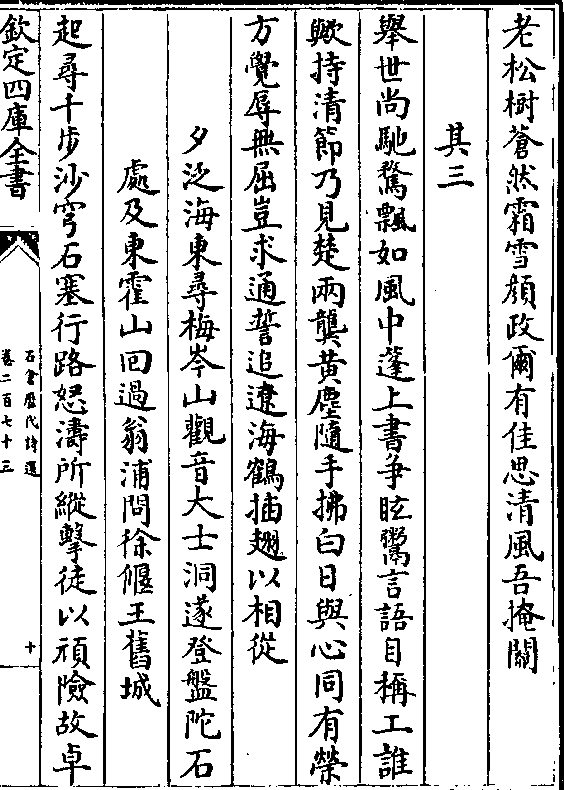 老松樹蒼然霜雪顔政爾有佳思清風吾掩關
其三
舉世尚馳騖飄如風中蓬上書爭眩鬻言語自稱工誰
歟持清節乃見楚兩龔黄塵隨手拂白日與心同有榮
方覺辱無屈豈求通誓追遼海鶴插翅以相從
夕泛海東尋梅岑山觀音大士洞遂登盤陀石
處及東霍山回過翁浦問徐偃王舊城
起尋千步沙穹石塞行路怒濤所縱擊徒以頑險故卓
欽定四庫全書
石倉歷代詩選
卷二百七十三
十